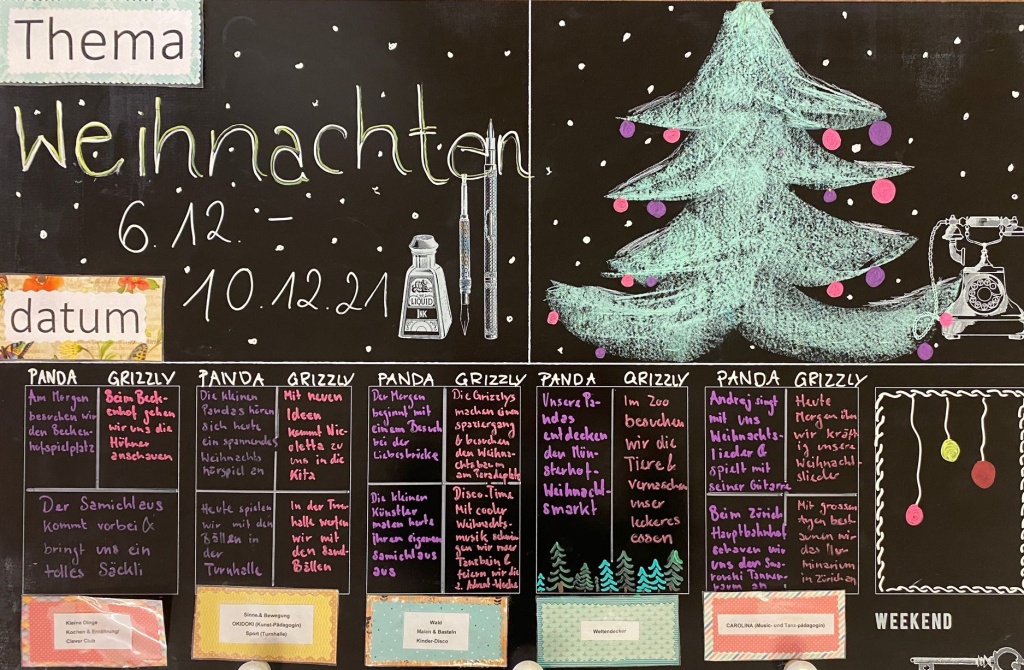 Thema
Weihnachten
6.12. –
10.12.21
datum
LIQUID
INK
PANDA
GRIZZLY
Am Morgen
besuchen wir
den Becken-
hofspielplatz
Beim Beck-
enhof gehen
wir uns die
Hühner
anschauen
Der Samichlaus
kommt vorbei &
bringt uns ein
tolles Säckli
Kleine Dinge
Kochen & Ernährung/
Clever Club
PANDA
GRIZZLY
Die kleinen
Pandas hören
sich heute
ein spannendes
Weihnachts
hörspiel an
Mit neuen
Ideen
kommt Nic-
oletta zu
uns in die
Kita
Heute spielen
wir mit den
Bällen in
der
Turnhalle
In der Turn
halle werfen
wir mit
den Sand-
Bällen
Sinne & Bewegung
OKIDOKI (Kunst-Pädagogin)
Sport (Turnhalle)
PANDA
GRIZZLY
Der Morgen
beginnt mit
einem Besuch
bei der
Liebesbrücke
Die Grizzlys
machen einen
spaziergang
& besuchen
den Weihna-
chtsbaum
am Paradeplatz
Die kleinen
Künstler
malen heute
ihren eigenen
Samichlaus
aus
Disco-Time
Mit cooler
Weihnachts-
musik schwin
gen wir unser
Tanzbein &
feiern wir die
2. Advent-Woche
Wald
Malen & Basteln
Kinder-Disco
PANDA
GRIZZLY
Unsere Pa-
ndas
entdecken
den Mün-
sterhof-
Weihnacht-
smarkt
Im Zoo
besuchen
wir die
Tiere &
Vernaschen
unser
leckeres
essen
Weltendecker
PANDA
GRIZZLY
Andrej singt
mit uns
Weihnachts-
lieder &
spielt mit
seiner Gitarre
Heute
Morgen üben
wir kräft
ig unsere
Weihnacht-
slieder
Beim Zürich
Hauptbahnhof
schauen wir
uns den Swa-
rowski Tannen-
baum an
Mit grossen
Augen best
aunen wir
das Illu-
minarium
in Zürich
CAROLINA (Music- und Tanz-pädagogin)
WEEKEND